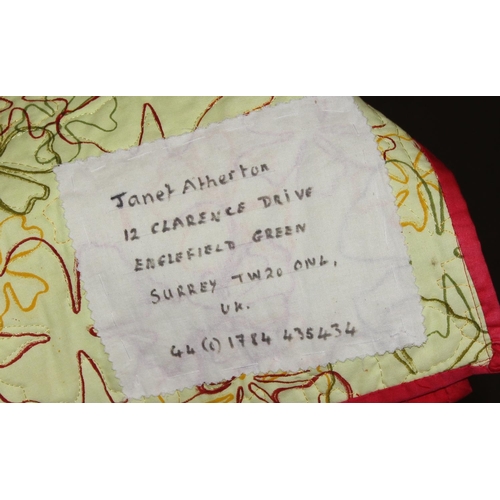 Janet Atherton
12 CLARENCE DRIVE
ENGLEFIELD GREEN
SURREY TW20 0NL,
UK.
44 (0) 1784 435434